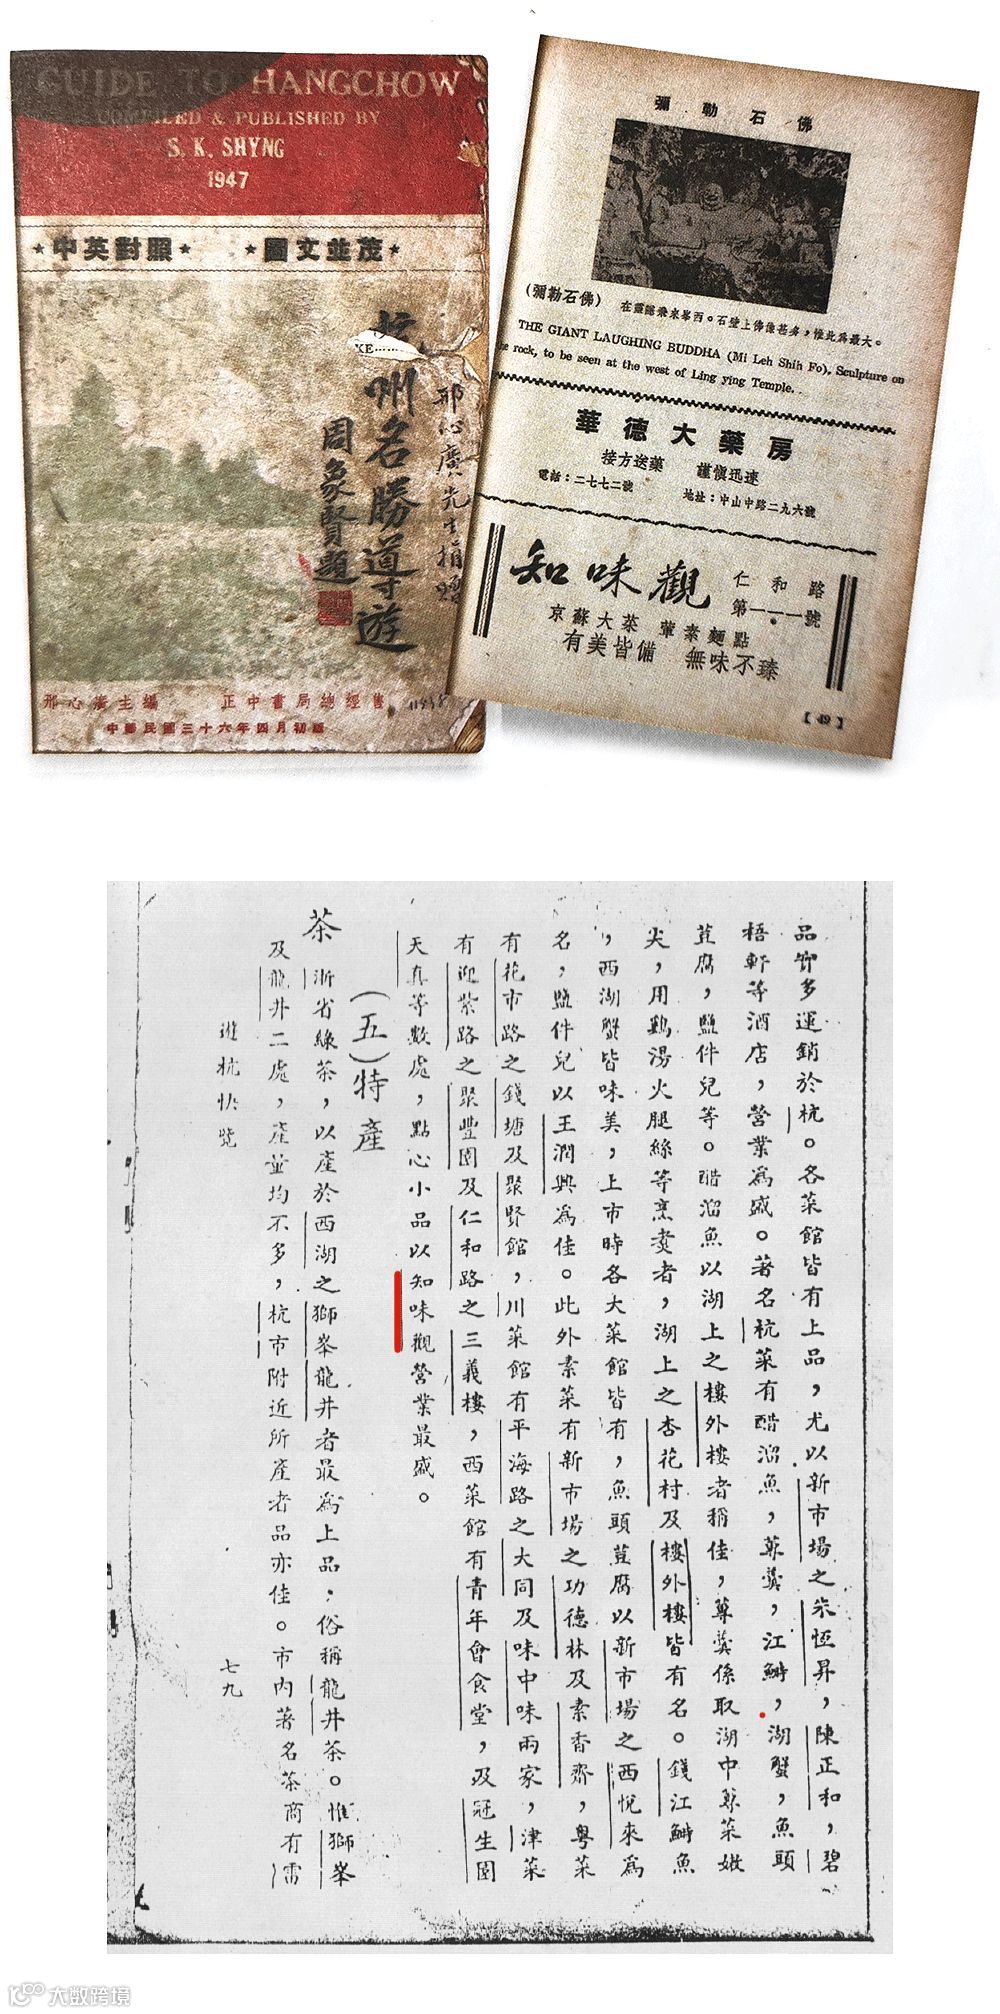 GUIDE TO HANGCHOW
COMPILED & PUBLISHED BY
S. K. SHYNG
1947
★中英對照★ ★圖文並茂★
KE......
杭州名勝導遊
周象賢題
邢心廣先生捐贈
邢心廣主編 正中書局總經售
中華民國三十六年四月初版
彌勒石佛
(彌勒石佛) 在靈隱飛來峯西。石壁上佛像甚多,惟此為最大。
THE GIANT LAUGHING BUDDHA (Mi Leh Shih Fo), Sculpture on
he rock, to be seen at the west of Ling ying Temple.
華德大藥房
接方送藥 謹慎迅速
電話:二七七二號 地址:中山中路二九六號
知味觀
仁和路
第一一一號
京蘇大菜 葷素麵點
有美皆備 無味不臻
【49】
品質多運銷於杭。各菜館皆有上品,尤以新市場之朱恆昇,陳正和,碧
梧軒等酒店,營業為盛。著名杭菜有醋溜魚,蓴羹,江鰣,湖蟹,魚頭
荳腐,鹽件兒等。醋溜魚以湖上之樓外樓者稱佳,蓴羹係取湖中蓴菜嫩
尖,用鷄湯火腿絲等烹煑者,湖上之杏花村及樓外樓皆有名。錢江鰣魚
,西湖蟹皆味美,上市時各大菜館皆有,魚頭荳腐以新市場之西悅來為
名,鹽件兒以王潤興為佳。此外素菜有新市場之功德林及素香齋,粤菜
有花市路之錢塘及聚賢館,川菜館有平海路之大同及味中味兩家,津菜
有迎紫路之聚豐園及仁和路之三義樓,西菜館有青年會食堂,及冠生園
天真等數處,點心小品以知味觀營業最盛。
(五)特產
茶 浙省綠茶,以產於西湖之獅峯龍井者最為上品,俗稱龍井茶。惟獅峯
及龍井二處,產並均不多,杭市附近所產者品亦佳。市内著名茶商有雷
遊杭快覽
七九
大数跨境